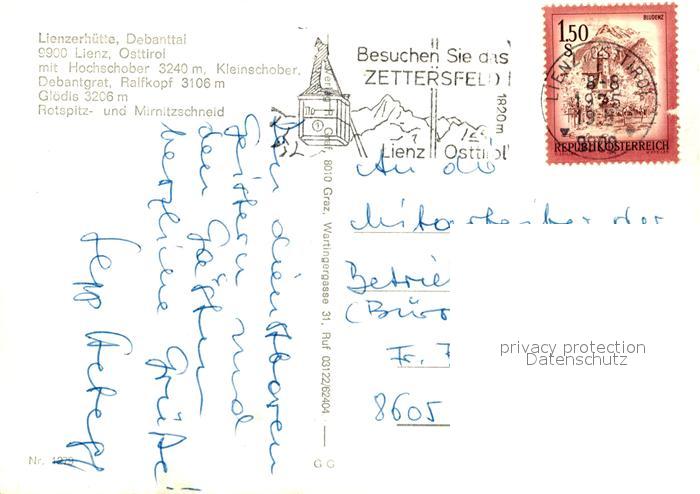 Lienzerhütte, Debanttal
9900 Lienz, Osttirol
mit Hochschober 3240 m, Kleinschober,
Debantgrat, Ralfkopf 3106 m
Glödis 3206 m
Rotspitz- und Mirnitzschneid
Besuchen Sie das
ZETTERSFELD
1820 m
Lienz Osttirol
1.50
S
BLUDENZ
REPUBLIK ÖSTERREICH
LIENZ OSTTIROL
9900
Verlag R. Graf, 8010 Graz, Wartingergasse 31, Ruf 03122/62404
An die
Mitarbeiter der
Betrie
(Büro
Fr.
8605
Gästen und
den
herzliche Grüße
privacy protection
Datenschutz
Nr. 1279
G G